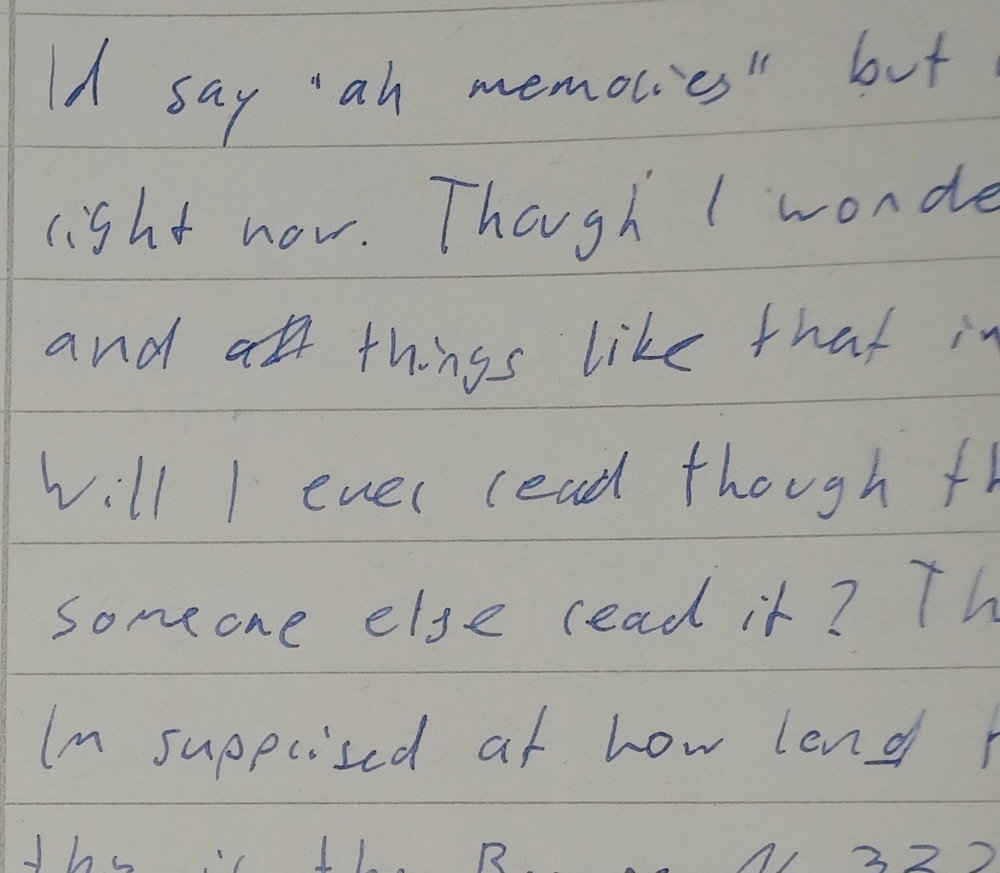 Id say "ah memories" but
right now. Though I wonde
and all things like that in
Will I ever read though th
someone else read it? Th
Im suppcised at how
is the